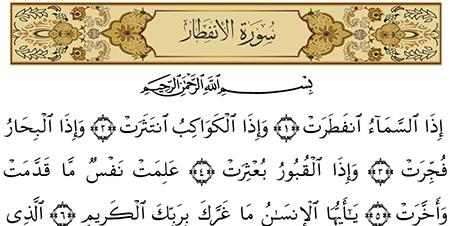 سورة الانفطار
بِسْمِ ٱللَّهِ ٱلرَّحْمَٰنِ ٱلرَّحِيمِ
إِذَا ٱلسَّمَآءُ ٱنفَطَرَتْ ۝١ وَإِذَا ٱلْكَوَاكِبُ ٱنتَثَرَتْ ۝٢ وَإِذَا ٱلْبِحَارُ
فُجِّرَتْ ۝٣ وَإِذَا ٱلْقُبُورُ بُعْثِرَتْ ۝٤ عَلِمَتْ نَفْسٌ مَّا قَدَّمَتْ
وَأَخَّرَتْ ۝٥ يَٰٓأَيُّهَا ٱلْإِنسَٰنُ مَا غَرَّكَ بِرَبِّكَ ٱلْكَرِيمِ ۝٦ ٱلَّذِي